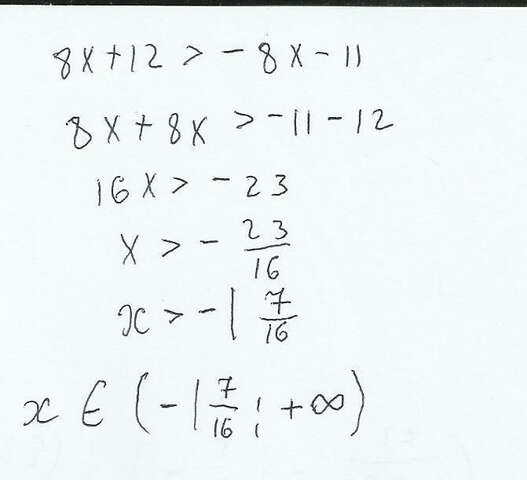 8x+12 > -8x-11
8x+8x > -11-12
16x > -23
x > -23/16
x > -1 7/16
x ∈ (-1 7/16; +∞)